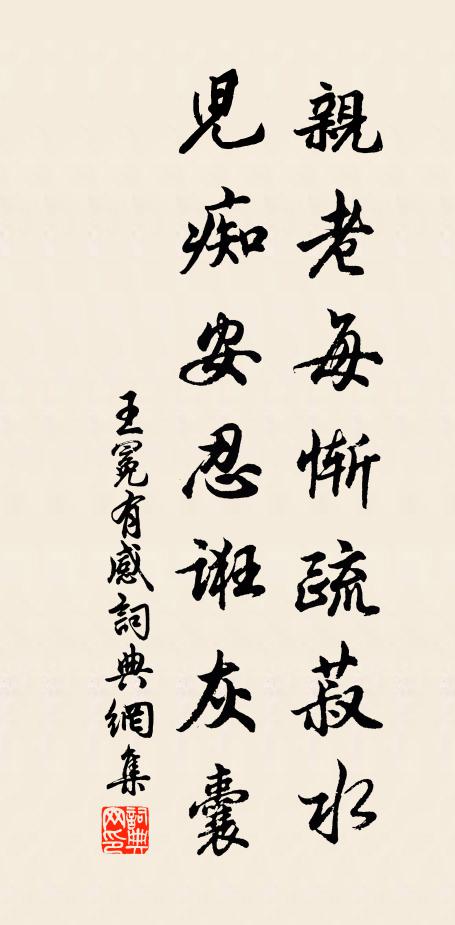 親老每慚疏菽水
兒痴安忍誑灰囊
王冕有感詞典網集
詞典网印